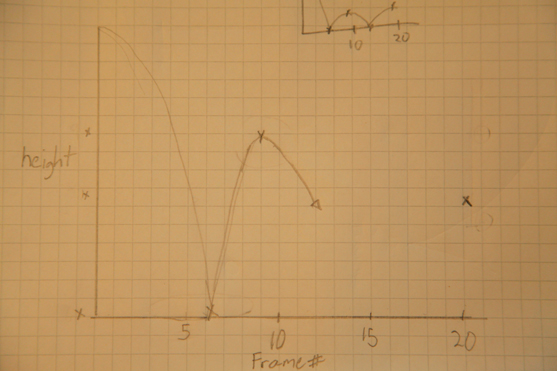 10 20
height
5 10 15 20
Frame #